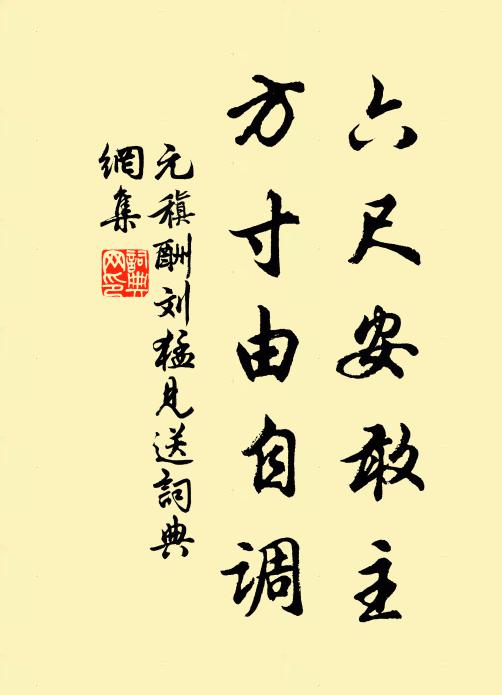 六尺安敢主
方寸由自调
元稹酬刘猛见送词典
網集
詞典
网印